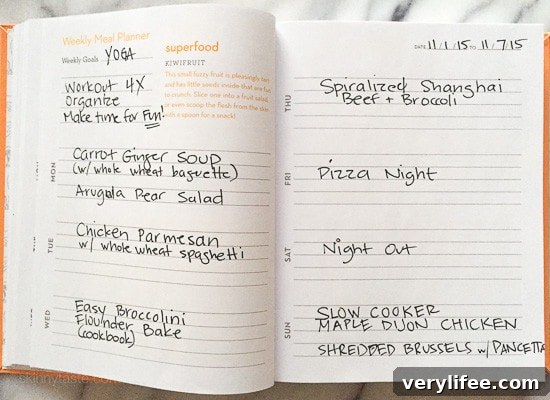 Weekly Meal Planner
Weekly Goals YOGA
Workout 4X
Organize
Make time for Fun!
superfood
KIWIFRUIT
This small fuzzy fruit is pleasingly tart
and has little seeds inside that are fun
to crunch. Slice one into a fruit salad,
or even scoop the flesh from the skin
with a spoon for a snack!
MON
Carrot Ginger SOUP
(w/ whole wheat baguette)
Arugula Pear Salad
TUE
Chicken Parmesan
w/ whole wheat spaghetti
WED
Easy Broccolini
Flounder Bake
(cookbook)
skinnytaste.com
DATE 11/1/15 TO 11/7/15
THU
Spiralized Shanghai
Beef + Broccoli
FRI
Pizza Night
SAT
Night Out
SUN
SLOW COOKER
MAPLE DIJON CHICKEN
SHREDDED BRUSSELS w/ PANCETTA
verylifee.com